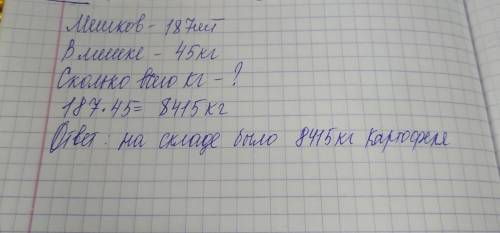 Мешков - 187 шт
В мешке - 45 кг
Сколько всего кг - ?
187 · 45 = 8415 кг
Ответ: на складе было 8415 кг картофеля